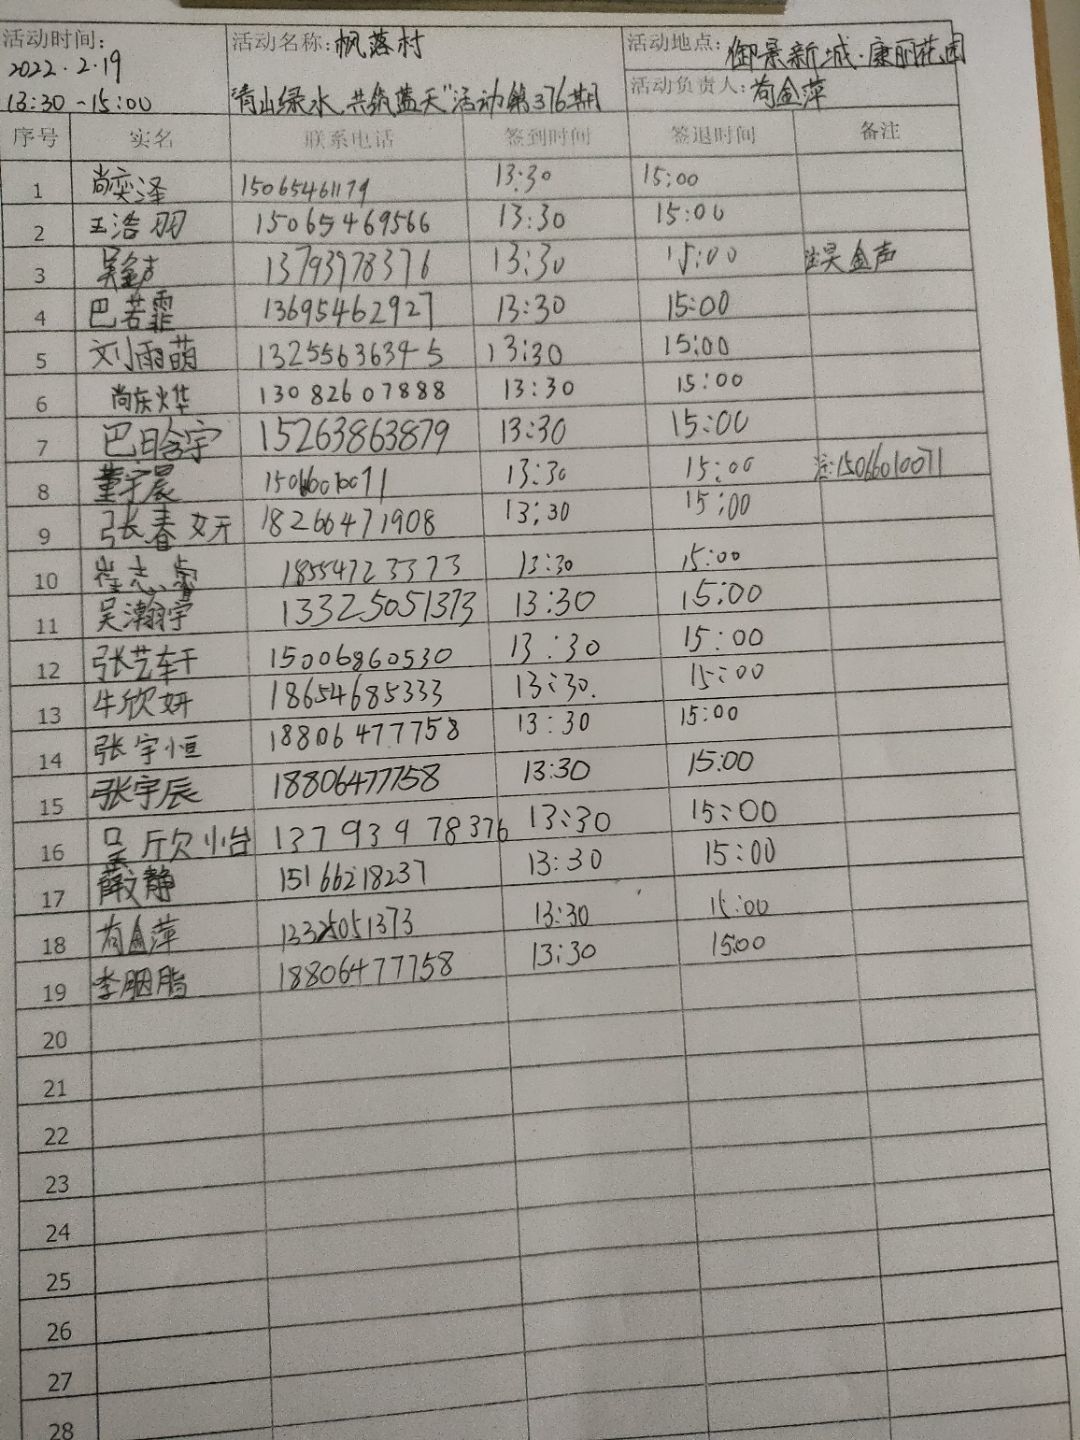 活动时间: 活动名称:枫落村 活动地点:御景新城·康丽花园
2022.2.19
13:30-15:00 "青山绿水,共筑蓝天"活动第376期 活动负责人:荀金萍
序号 实名 联系电话 签到时间 签退时间 备注
1 尚奕泽 15065461179 13:30 15:00
2 王浩羽 15065469566 13:30 15:00
3 吴金声 13793978376 13:30 15:00 注吴金声
4 巴若霏 13695462927 13:30 15:00
5 刘雨萌 13255636345 13:30 15:00
6 尚庆烨 13082607888 13:30 15:00
7 巴晗宇 15263863879 13:30 15:00
8 董宇晨 15066010071 13:30 15:00 注:15066010071
9 张春妍 18266471908 13:30 15:00
10 崔志睿 18554723373 13:30 15:00
11 吴瀚宇 13325051373 13:30 15:00
12 张艺轩 15006860530 13:30 15:00
13 牛欣妍 18654685333 13:30. 15:00
14 张宇恒 18806477758 13:30 15:00
15 张宇辰 18806477758 13:30 15:00
16 吴欣怡 13793978376 13:30 15:00
17 薛文静 15166218237 13:30 15:00
18 荀金萍 13325051373 13:30 15:00
19 李胭脂 18806477758 13:30 15:00
20
21
22
23
24
25
26
27
28